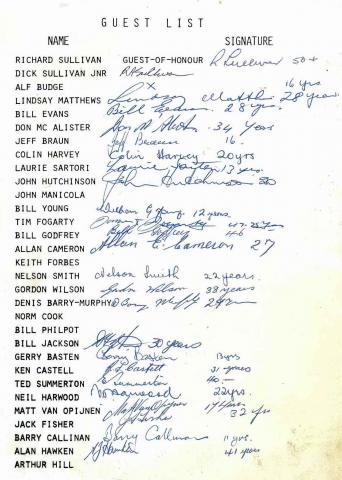 GUEST LIST
NAME SIGNATURE
RICHARD SULLIVAN GUEST-OF-HONOUR R Sullivan 50+
DICK SULLIVAN JNR RHSullivan
ALF BUDGE x 16 yrs
LINDSAY MATTHEWS Lindsay Matth 28 years
BILL EVANS Bill Evans 28 yrs.
DON MC ALISTER Don M Alister 34 Years
JEFF BRAUN Jeff Braun 16.
COLIN HARVEY Colin Harvey 20yrs
LAURIE SARTORI Laurie Sartori 13 yrs.
JOHN HUTCHINSON John Hutchinson 30
JOHN MANICOLA
BILL YOUNG William G Young 12 years
TIM FOGARTY
BILL GODFREY Bill Godfrey 46
ALLAN CAMERON Allan E. Cameron 27
KEITH FORBES
NELSON SMITH Nelson Smith 22 years.
GORDON WILSON Gordon Wilson 38 years
DENIS BARRY-MURPHY
NORM COOK
BILL PHILPOT
BILL JACKSON 30 years
GERRY BASTEN Gerry Basten 13yrs
KEN CASTELL Castell 31 years
TED SUMMERTON Summerton 40.-
NEIL HARWOOD Harwood 22yrs.
MATT VAN OPIJNEN Matt Van Opijnen 17 Years
JACK FISHER 32 yrs
BARRY CALLINAN Barry Callinan 11 yrs.
ALAN HAWKEN Hawken 41 years
ARTHUR HILL